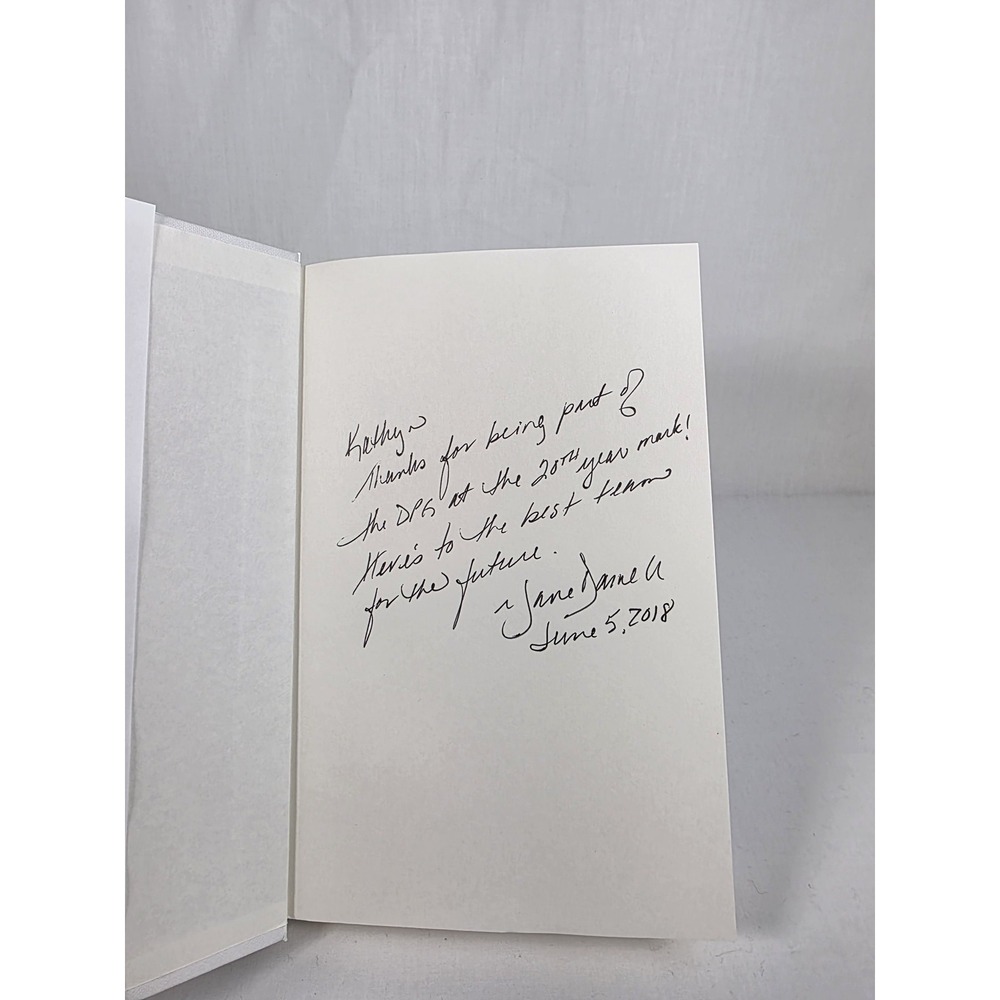 Kathryn
Thanks for being part of
the DPG at the 20TH year mark!
Here's to the best team
for the future.
~ Jane
June 5, 2018